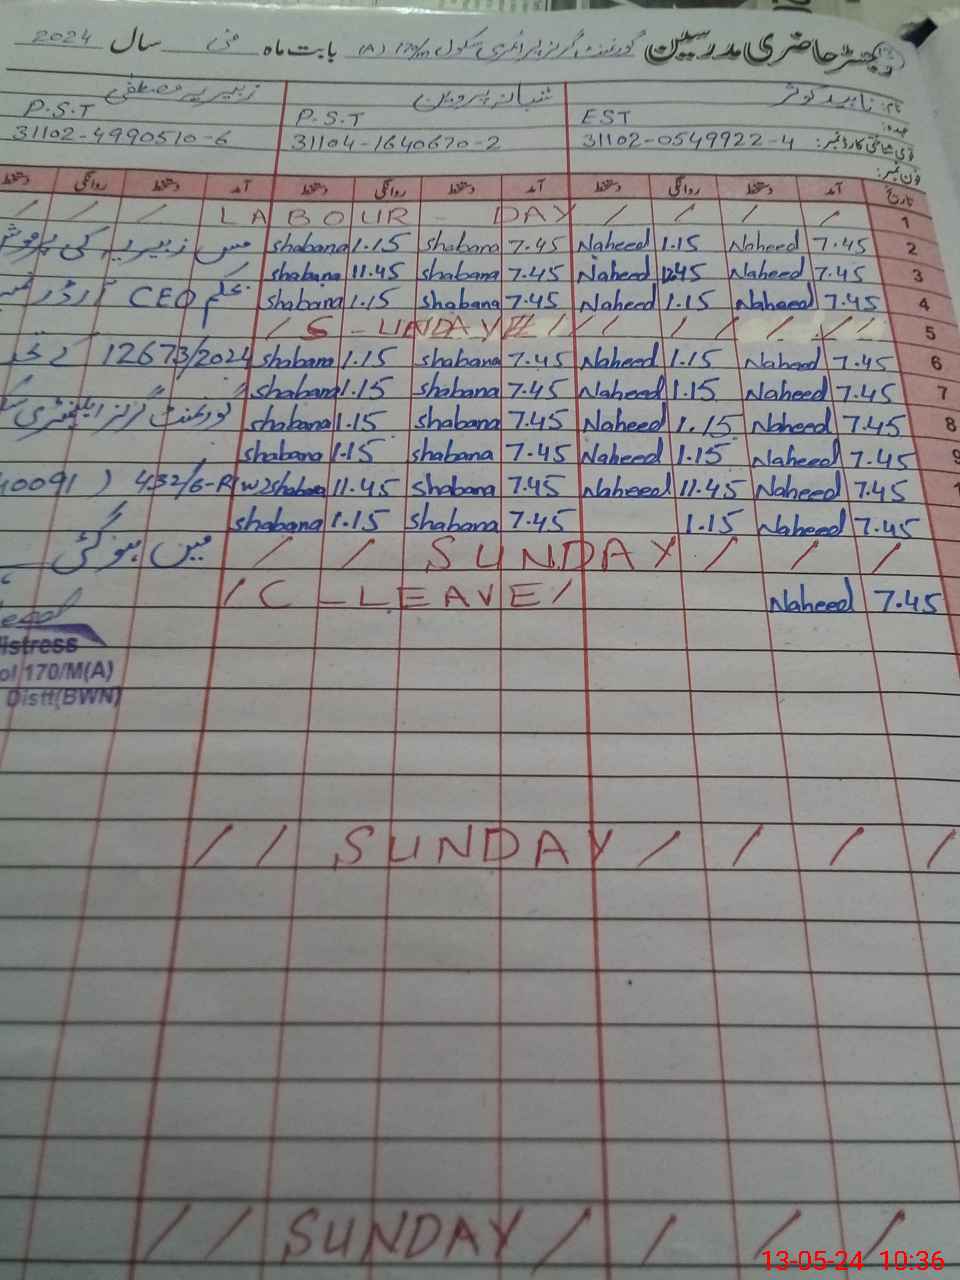 رجسٹر حاضری مدرسین گورنمنٹ گرلز پرائمری سکول 170/M (A) بابت ماہ مئی سال 2024
نام: ناہید کوثر شبانہ پروین زبیریہ مصطفی
عہدہ: EST P.S.T P.S.T
قومی شناختی کارڈ نمبر: 31102-0549922-4 31104-1640670-2 31102-4990510-6
فون نمبر:
تاریخ آمد دستخط روانگی دستخط آمد دستخط روانگی دستخط آمد دستخط روانگی دستخط
1 / / / / LABOUR - DAY / / /
2 7.45 Naheed 1.15 Naheed 7.45 shabana 1.15 shabana مس زبیریہ کی
3 7.45 Naheed 12.45 Naheed 7.45 shabana 11.45 shabana
4 7.45 Naheed 1.15 Naheed 7.45 shabana 1.15 shabana بحکم CEO آرڈر
5 / S - UNDAY / / / / / / /
6 7.45 Naheed 1.15 Naheed 7.45 shabana 1.15 shabana 12673/2024
7 7.45 Naheed 1.15 Naheed 7.45 shabana 1.15 shabana
8 7.45 Naheed 1.15 Naheed 7.45 shabana 1.15 shabana گورنمنٹ گرلز ایلیمنٹری
9 7.45 Naheed 1.15 Naheed 7.45 shabana 1.15 shabana
1 7.45 Naheed 11.45 Naheed 7.45 shabana 11.45 shabana 432/6-R 40091)
7.45 Naheed 1.15 7.45 shabana 1.15 shabana
/ / SUNDAY / / / میں ہو گئی
7.45 Naheed / C - LEAVE /
istress
ol 170/M(A)
Distt(BWN)
/ / SUNDAY / / / /
/ / SUNDAY / / / /
13-05-24 10:36